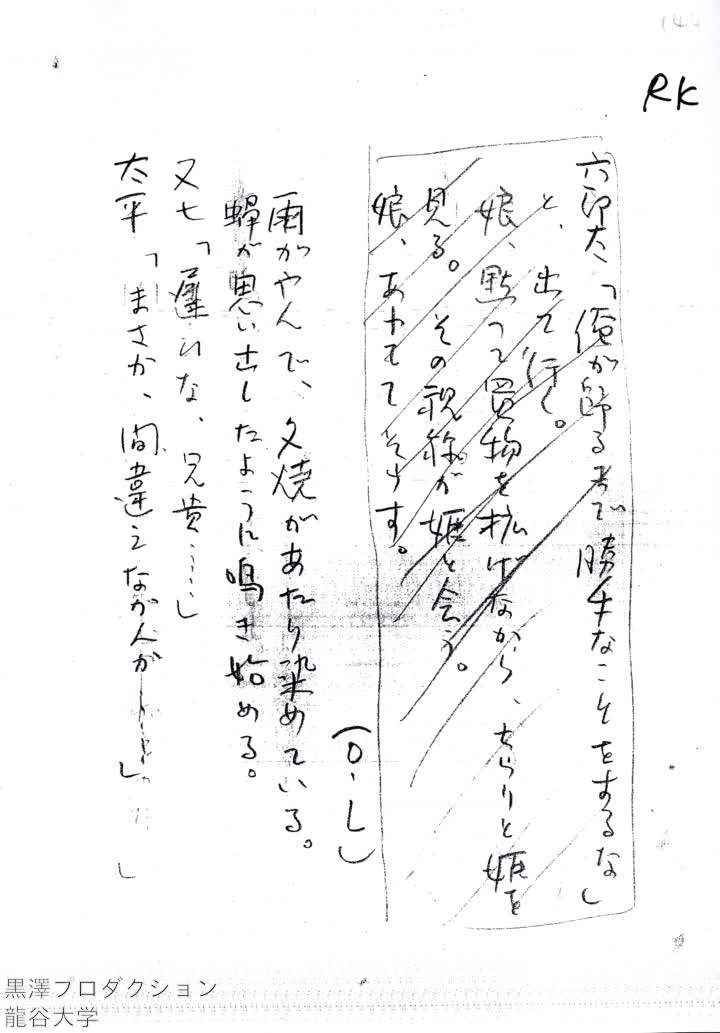 144
RK
六郎太「俺が帰るまで勝手なことをするな」
と、出て行く。
娘、黙って買物を拡げながら、ちらりと姫を
見る。その視線が姫と会う。
娘、あわててそらす。
(O・L)
雨がやんで、夕焼があたり染めている。
蝉が思い出したように鳴き始める。
又七「遅いな、兄貴……」
太平「まさか、間違えなが人が
」
黒澤プロダクション
龍谷大学